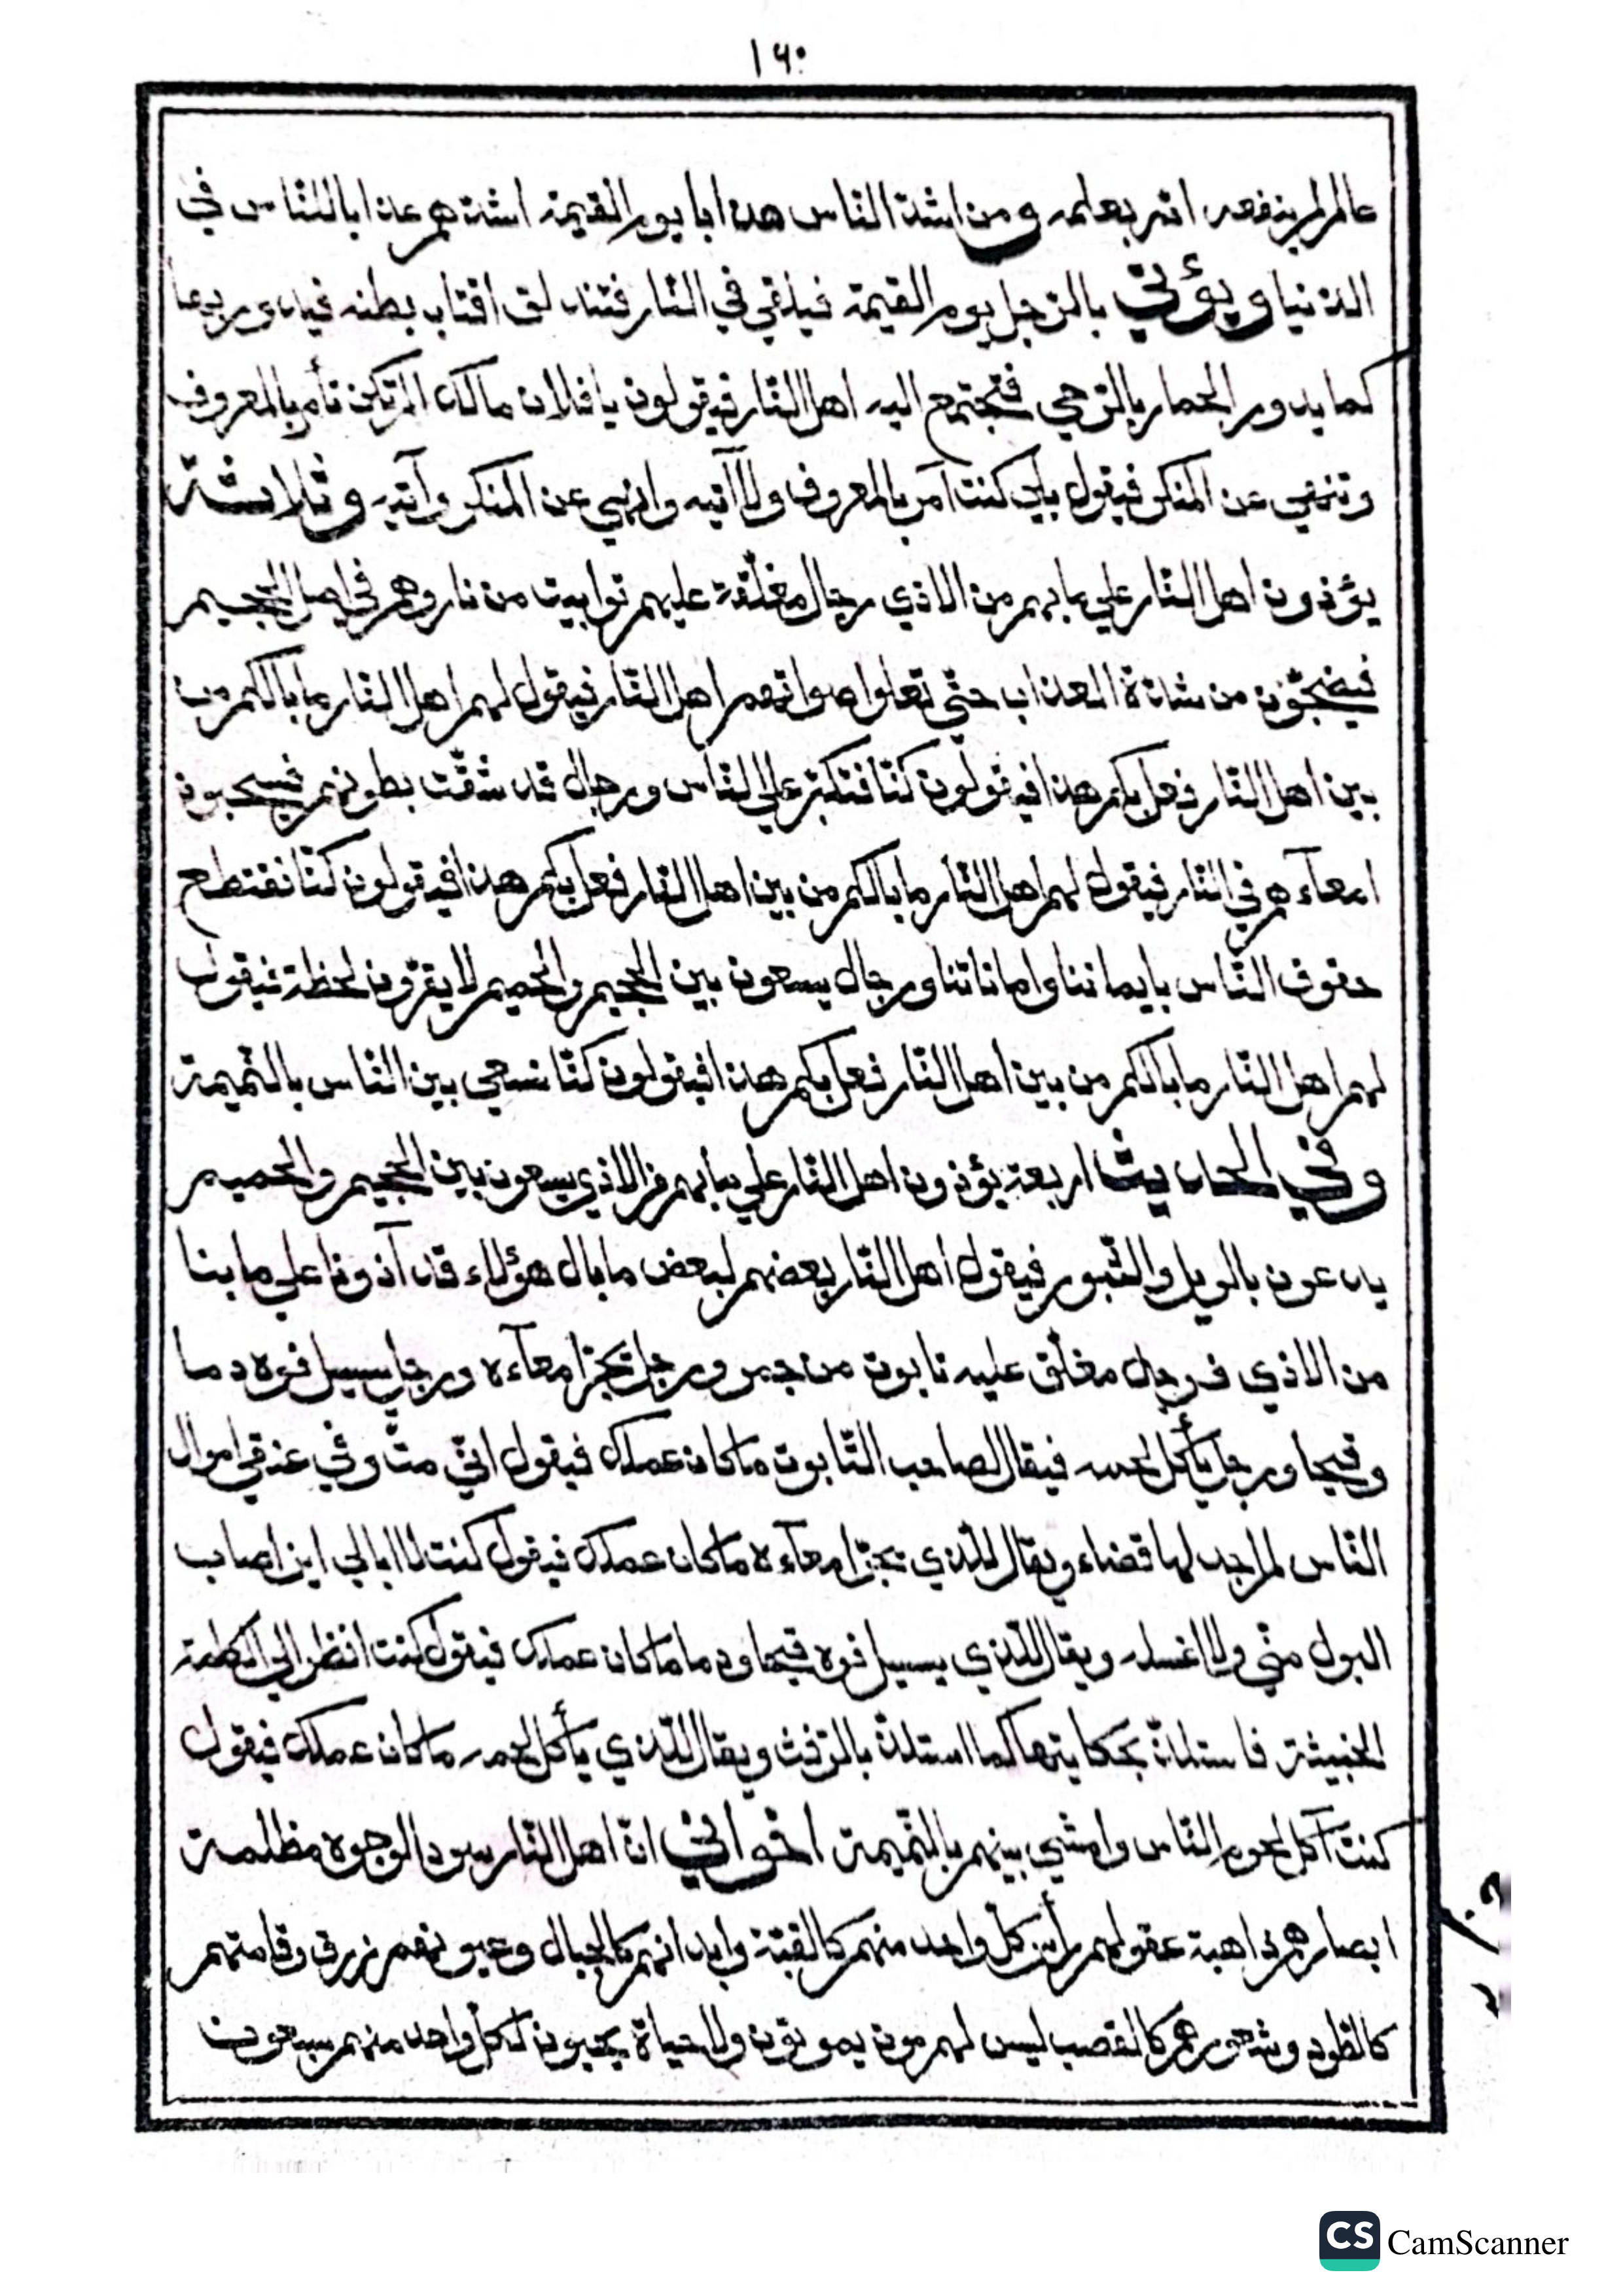 ١٦٠
عالم لم ينفعه الله بعلمه ومن اشدّ النّاس هذابا يوم القيمة اشدّهم عذابا للنّاس في
الدّنيا ويؤتي بالرّجل يوم القيمة فيلقي في النّار فتندلق اقتاب بطنه فيدور بها
كما يدور الحمار بالرّحي فتجتمع اليه اهل النّار فيقولون يا فلان مالك الم تكن تأمر بالمعروف
وتنهي عن المنكر فيقول بلي كنت آمر بالمعروف ولا آتيه وانهي عن المنكر وآتيه وثلاثة
يؤذون اهل النّار علي ما بهم من الاذي رجال مغلّقة عليهم توابيت من نار وهم في اصل الجحيم
فيضجّون من شدّة العذاب حتّي تعلوا صواتهم اهل النّار فيقول لهم اهل النّار ما بالكم من
بين اهل النّار فعل بكم هذا فيقولون كنّا نتكبّر علي النّاس ورجال قد شقّت بطونهم يسحبون
امعآءهم في النّار فيقول لهم اهل النّار ما بالكم من بين اهل النّار فعل بكم هذا فيقولون كنّا نقتطع
حقوق النّاس بايماننا واماناتنا ورجال يسعون بين الجحيم والحميم لا يقرّون لحظة فيقول
لهم اهل النّار ما بالكم من بين اهل النّار فعل بكم هذا فيقولون كنّا نسعي بين النّاس بالنّميمة
وفي الحديث اربعة يؤذون اهل النّار علي ما بهم من الاذي يسعون بين الجحيم والحميم
يدعون بالويل والثّبور فيقول اهل النّار بعضهم لبعض ما بال هؤلاء قد آذونا علي ما بنا
من الاذي فرجل مغلّق عليه تابوت من جمر ورجل يجرّ امعآءه ورجل يسيل فوه دما
وقيحا ورجل يأكل لحمه فيقال لصاحب التّابوت ما كان عملك فيقول انّي متّ وفي عنقي اموال
النّاس لم اجد لها قضاء ويقال للّذي يجرّ امعآءه ما كان عملك فيقول كنت لا ابالي اين اصاب
البول منّي ولا اغسله ويقال للّذي يسيل فوه قيحا ودما ما كان عملك فيقول كنت انظر الي الكلمة
الخبيثة فاستلذّ بحكايتها كما استلذّ بالرّفث ويقال للّذي يأكل لحمه ما كان عملك فيقول
كنت آكل لحوم النّاس وامشي بينهم بالنّميمة اخواني انّ اهل النّار سود الوجوه مظلمة
ابصارهم ذاهبة عقولهم رأس كلّ واحد منهم كالقبّة وابدانهم كالجبال وعيونهم زرق وقامتهم
كالطّود وشعورهم كالقصب ليس لهم موت يموتون ولا حياة يحيون لكلّ واحد منهم سبعون
CS CamScanner